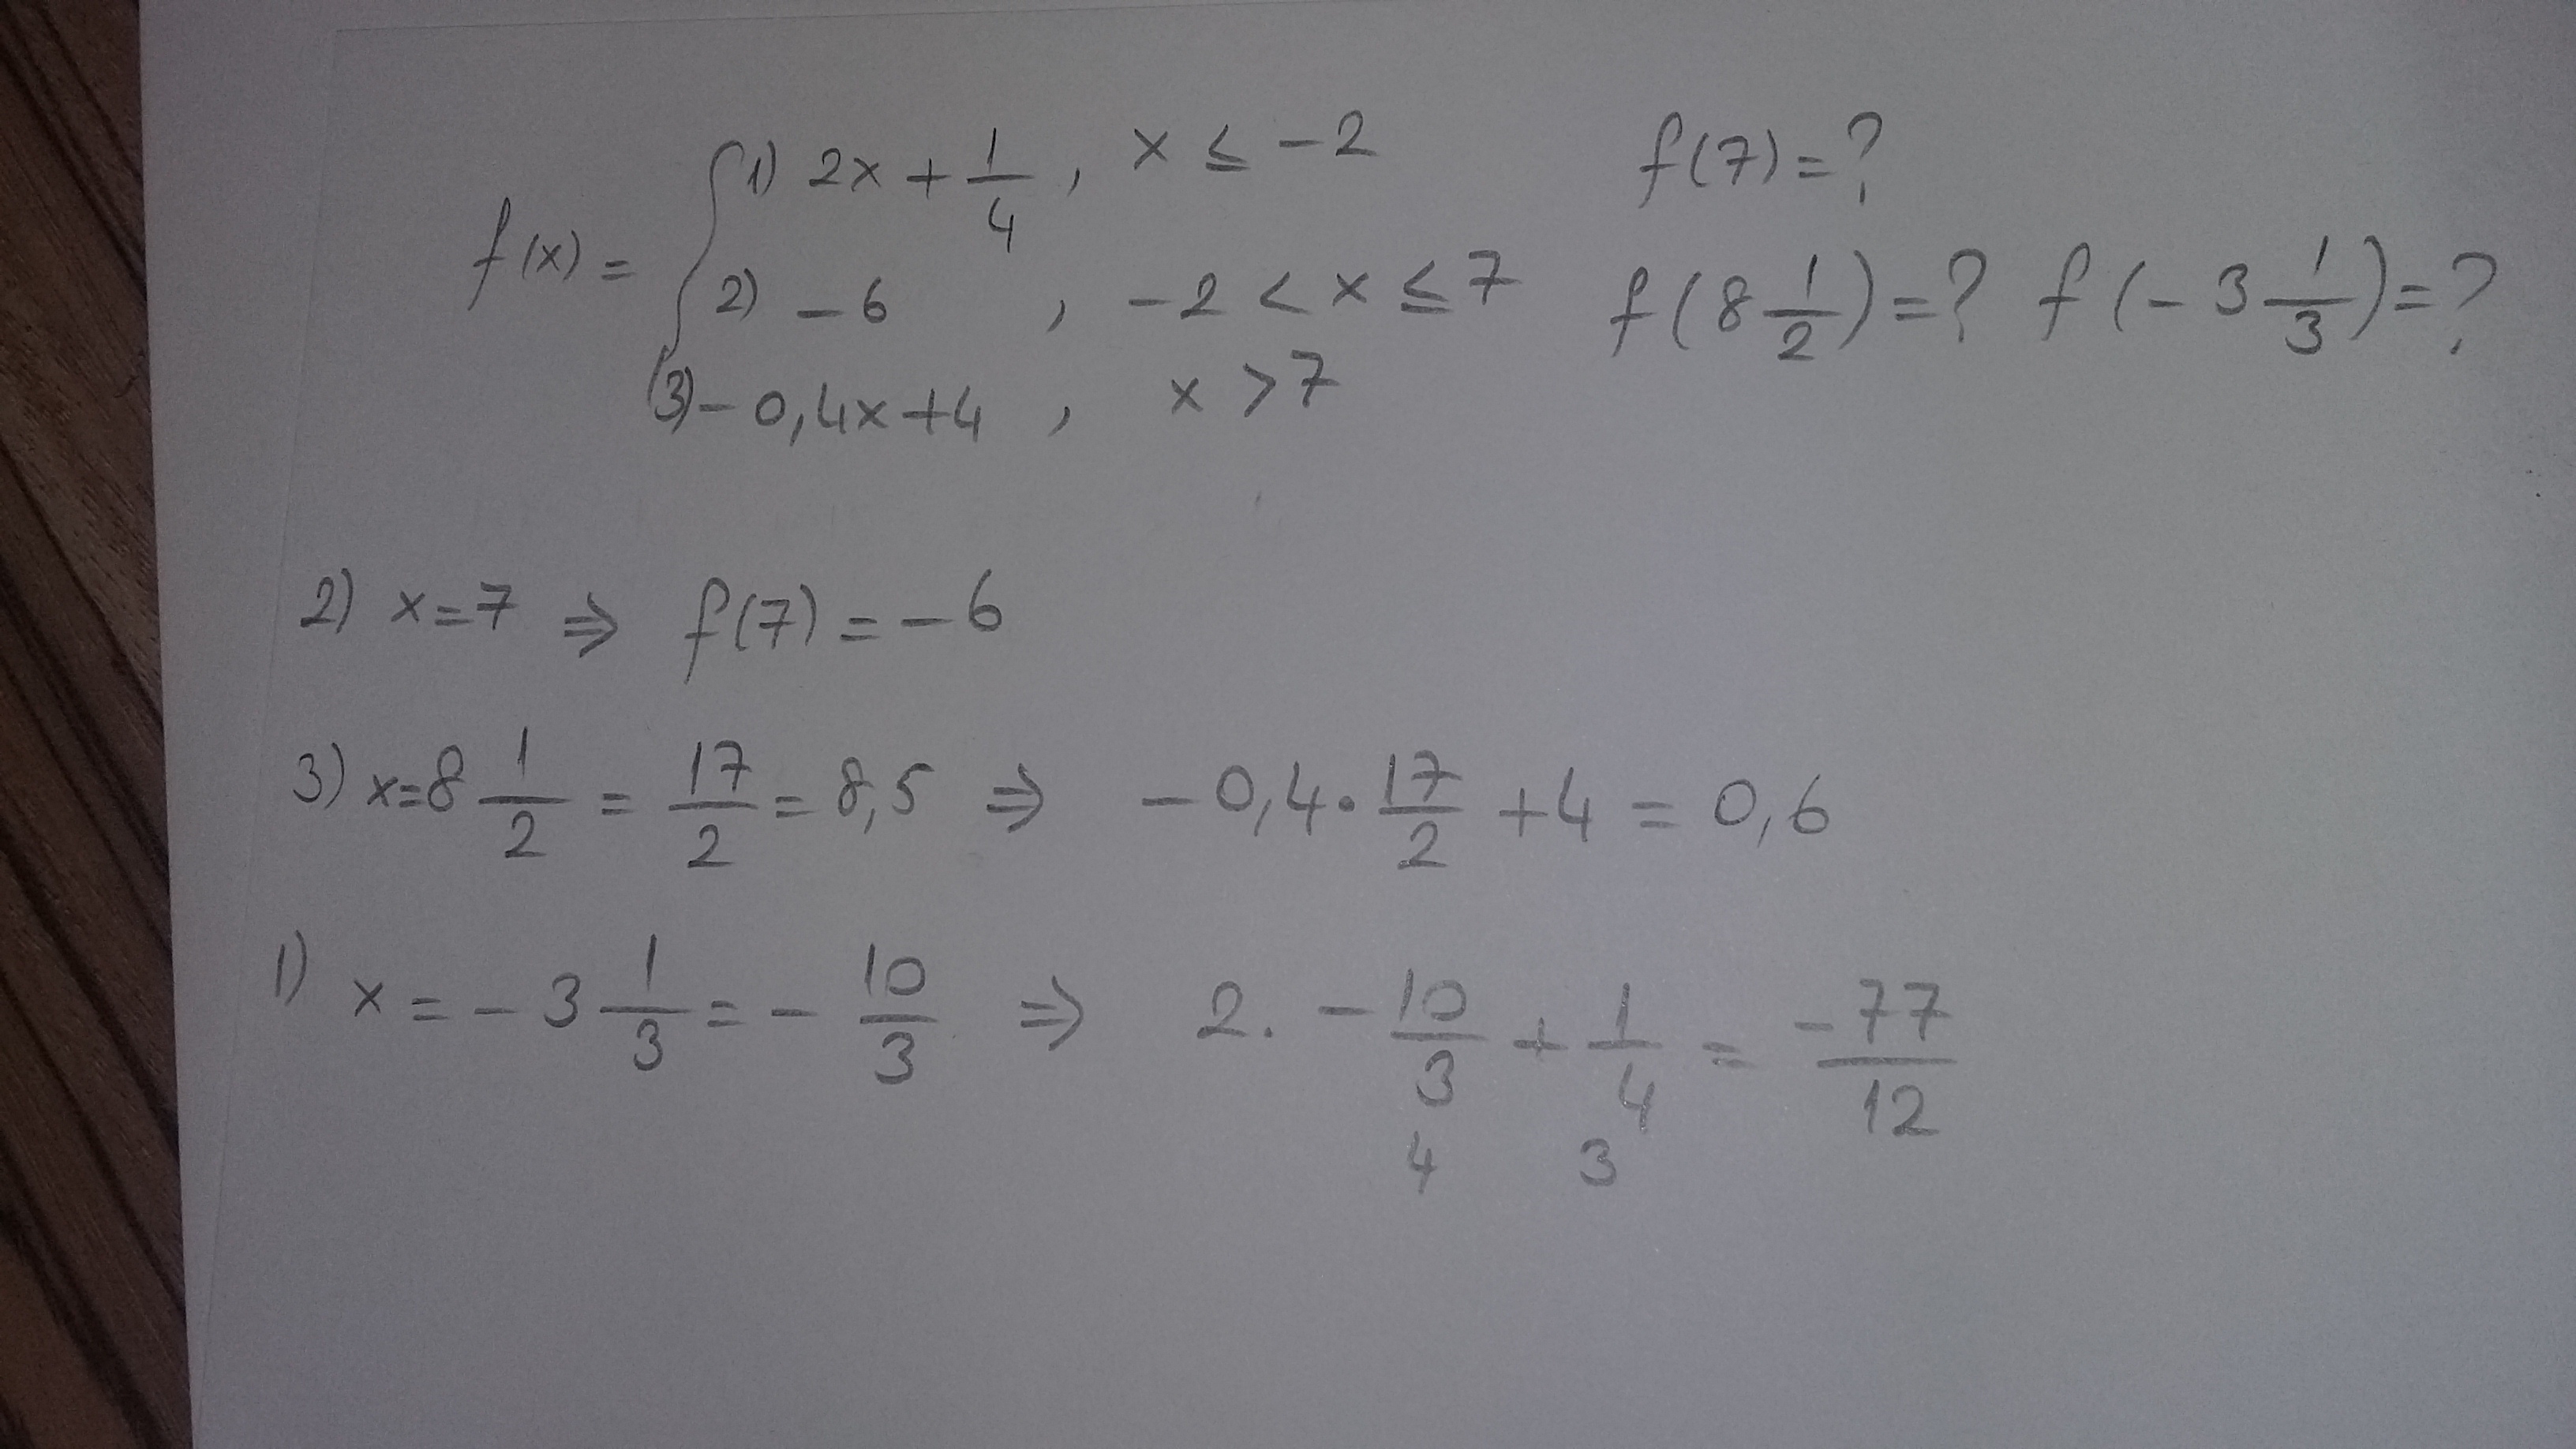 f(x) = { 1) 2x + 1/4 , x ≤ -2
2) -6 , -2 < x ≤ 7
3) -0,4x+4 , x > 7
f(7) = ?
f(8 1/2) = ? f(-3 1/3) = ?
2) x=7 ⇒ f(7) = -6
3) x=8 1/2 = 17/2 = 8,5 ⇒ -0,4 • 17/2 + 4 = 0,6
1) x = -3 1/3 = - 10/3 ⇒ 2. - 10/3 + 1/4 = -77/12
4 3